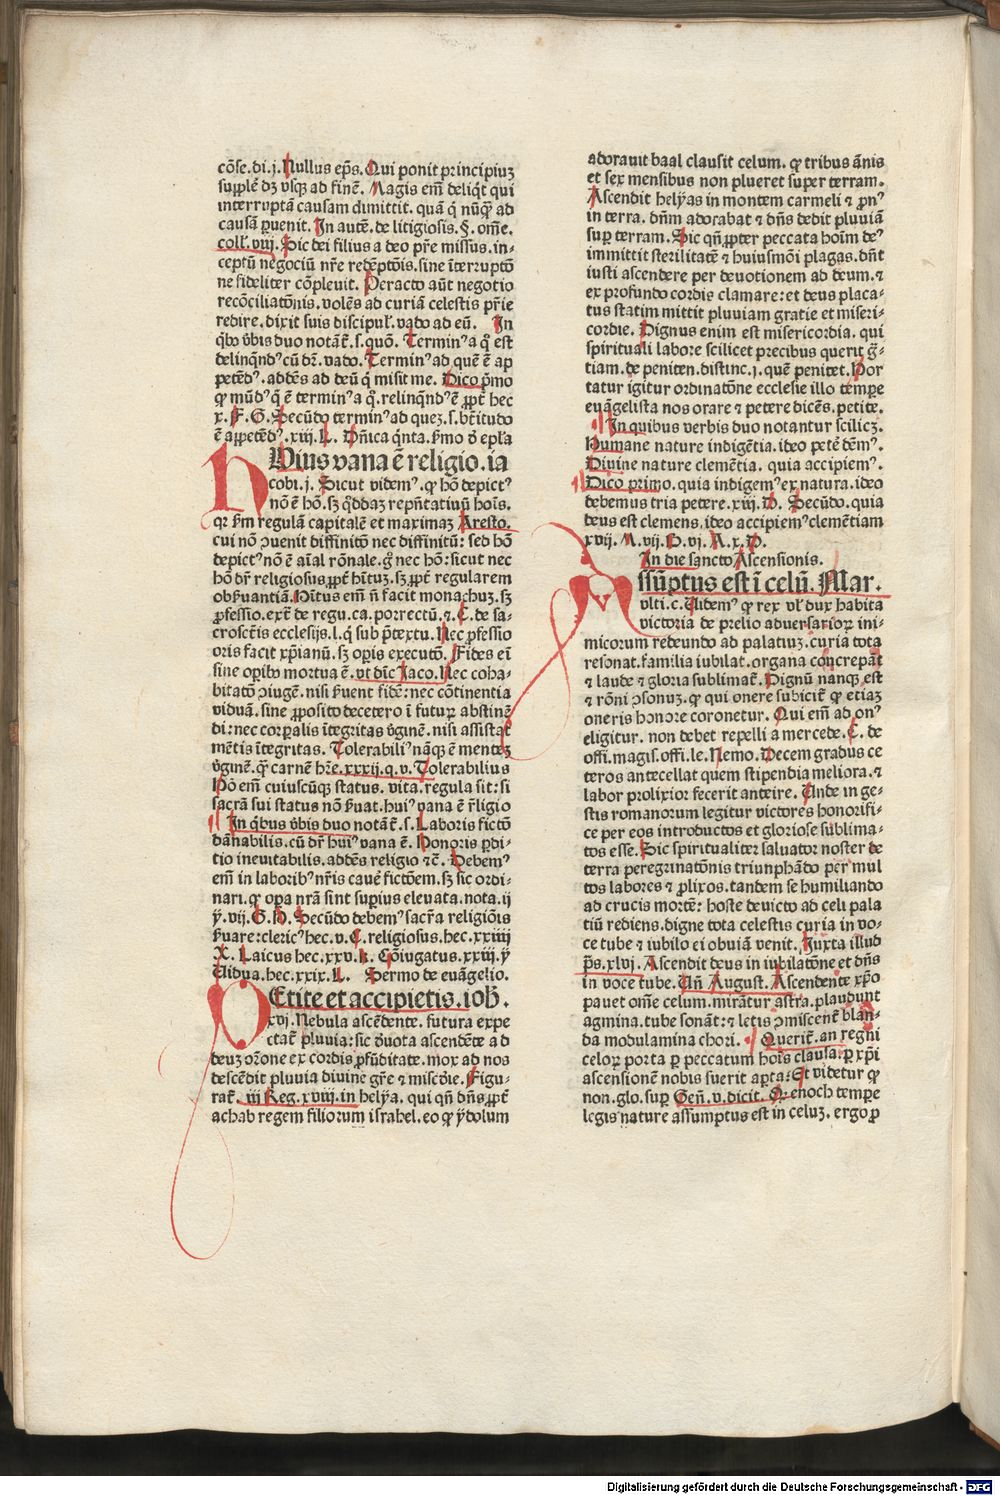 cõse.di.j.Nullus ep̃s.Qui ponit principiuꝫ
supplẽ dꝫ vsqꝫ ad finẽ. Magis em̃ deliq̃t qui
interruptã causam dimittit.quã q̃ nũqꝫ ad
causã ꝑuenit. In autẽ.de litigiosis.§.om̃e.
coll̃.viij. Sic dei filius a deo pr̃e missus.in-
ceptũ negociũ nr̃e redẽptõis.sine ĩterruptõ
ne fideliter cõpleuit. Peracto aũt negotio
recõciliatõnis.volẽs ad curiã celestis pr̃ie
redire.dixit suis discipul̃.vado ad eũ. In
qͥbꝰ v̾bis duo notãt̃.s.quõ. Terminꝰ a q̊ est
delinqͥndꝰ cũ dr̃.vado. Terminꝰ ad quẽ ẽ ap
petẽdꝰ.addẽs ad deũ q̃ misit me. Dico p̃mo
ꝙ mũdꝰ q̃ ẽ terminꝰ a q̊.relinqͥndꝰ ẽ ꝓpt̃ hec
x. F. G. Secũdo terminꝰ ad queꝫ.s.bt̃itudo
ẽ appetẽdꝰ.xiij.L. Dñica qͥnta.ſ̾mo ð epl̃a
HUius vana ẽ religio.ia
cobi.j. Sicut videmꝰ.ꝙ hõ depictꝰ
nõ ẽ hõ.sꝫ qͦddaꝫ repñtatiuũ hoĩs.
qꝛ ẜm regulã capitalẽ et maximaꝫ Aresto.
cui nõ ꝯuenit diffinitõ nec diffinitũ: sed hõ
depictꝰ nõ ẽ aĩal rõnale.g̊ nec hõ: sicut nec
hõ dr̃ religiosus ꝓpt̃ hĩtuꝫ.sꝫ ꝓpt̃ regularem
obẜuantiã.Hĩtus em̃ ñ facit monachuꝫ.sꝫ
ꝓfessio.ext̃ de regu.ca.porrectũ.⁊.C.de sa-
croscẽtis ecclesijs.l.q̃ sub p̃textu. Nec ꝓfessio
oris facit xp̃ianũ.sꝫ oꝑis executõ. Fides eĩ
sine oꝑibꝰ mortua ẽ.vt dic̃ Jaco. Nec coha-
bitatõ ꝯiugẽ.nisi ẜuent fidẽ: nec cõtinentia
viduã.sine ꝓposito decetero ĩ futuꝛ abstinẽ
di: nec corꝑalis ĩtegritas v̾ginẽ.nisi assistat
mẽtis ĩtegritas. Tolerabiliꝰ nãqꝫ ẽ menteꝫ
v̾ginẽ.qꝫ carnẽ hr̃e.xxxij.q.v. Tolerabilius
Hõ em̃ cuiuscũqꝫ status.vita.regula sit: si
sacrã sui status nõ ẜuat.huiꝰ vana ẽ r̃ligio
In qͥbus v̾bis duo notãt̃.s. Laboris fictõ
dãnabilis.cũ dr̃ huiꝰ vana ẽ. Honoris ꝑdi-
tio ineuitabilis.addẽs religio ⁊c̃. Debemꝰ
em̃ in laboribꝰ nr̃is cauẽ fictõem.sꝫ sic ordi-
nari.ꝙ oꝑa nr̃a sint suꝑius eleuata.nota.ij
ꝟ.vij.G.H. Secũdo debemꝰ sacr̃a religiõis
ẜuare: clericꝰ hec.v.C.religiosus.hec.xxiiij
X. Laicus hec.xxv.K. Cõiugatus.xxiij.ꝟ
Uidua.hec.xxix.L. Sermo de euãgelio.
PEtite et accipietis.ioh̃.
xvj.Nebula ascẽdente.futura expe
ctat̃ pluuia: sic ðuota ascendẽte ad
deuꝫ or̃one ex cordis ꝓfũditate.mox ad nos
descẽdit pluuia diuine gr̃e ⁊ misc̃die. Figu-
rat̃.iij Reg.xviij.in helya.qui qñ dñs ꝓpt̃
achab regem filiorum israhel.eo ꝙ ydolum
adorauit baal clausit celum.ꝙ tribus ãnis
et sex mensibus non plueret super terram.
Ascendit helyas in montem carmeli ⁊ ꝓnꝰ
in terra.dñm adorabat ⁊ dñs dedit pluuiã
suꝑ terram. Sic qñ ꝓpter peccata hoĩm deꝰ
immittit sterilitatẽ ⁊ huiusmõi plagas.dñt
iusti ascendere per deuotionem ad deum.⁊
ex profundo cordis clamare: et deus placa-
tus statim mittit pluuiam gratie et miseri-
cordie. Dignus enim est misericordia.qui
spirituali labore scilicet precibus querit gr̃-
tiam.de peniten.distinc.j.quẽ penitet. Hor
tatur igitur ordinatõne ecclesie illo temꝑe
euãgelista nos orare ⁊ petere dicẽs.petite.
In quibus verbis duo notantur scilicꝫ.
Humane nature indigẽtia.ideo petẽ dẽmꝰ.
Diuine nature clemẽtia. quia accipiemꝰ.
Dico primo.quia indigemꝰ ex natura.ideo
debemus tria petere.xiij.D. Secũdo.quia
deus est clemens.ideo accipiemꝰ clemẽtiam
xvij. M.vij.D.vj. A.x.D.
In die sancto Ascensionis.
ASsũptus est ĩ celũ. Mar.
vlti.c. Uidemꝰ ꝙ rex vl̃ dux habita
victoria de prelio aduersarioꝛ ini-
micorum redeundo ad palatiuꝫ.curia tota
resonat.familia iubilat.organa concrepãt
⁊ laude ⁊ gloria sublimat̃. Dignũ nanqꝫ est
⁊ rõni ꝯsonuꝫ.ꝙ qui onere subicit̃ ꝙ etiaꝫ
oneris honore coronetur. Qui em̃ ad onꝰ
eligitur.non debet repelli a mercede. C. de
offi.magis.offi.le. Nemo. Decem gradus ce
teros antecellat quem stipendia meliora.⁊
labor prolixior fecerit anteire. Unde in ge-
stis romanorum legitur victores honorifi-
ce per eos introductos et gloriose sublima-
tos esse. Sic spiritualiter saluator noster de
terra peregrinatõnis triunphãdo per mul
tos labores ⁊ ꝓlixos.tandem se humiliando
ad crucis mortẽ: hoste deuicto ad celi pala
tiũ rediens.digne tota celestis curia in vo-
ce tube ⁊ iubilo ei obuiã venit. Juxta illud
p̃s.xlvj. Ascendit deus in iubilatõne et dñs
in voce tube. Uñ August. Ascendente xp̃o
pauet om̃e celum.mirãtur astra.plaudunt
agmina.tube sonãt: ⁊ letis ꝯmiscent̃ blan-
da modulamina chori. Querit̃.an regni
celoꝛ porta ꝑ peccatum hoĩs clausa.ꝑ xp̃i
ascensionẽ nobis fuerit aꝑta: Et videtur ꝙ
non.glo.suꝑ Geñ.v.dicit. Qꝛ enoch temꝑe
legis nature assumptus est in celuꝫ.ergo ꝑ
Digitalisierung gefördert durch die Deutsche Forschungsgemeinschaft - DFG